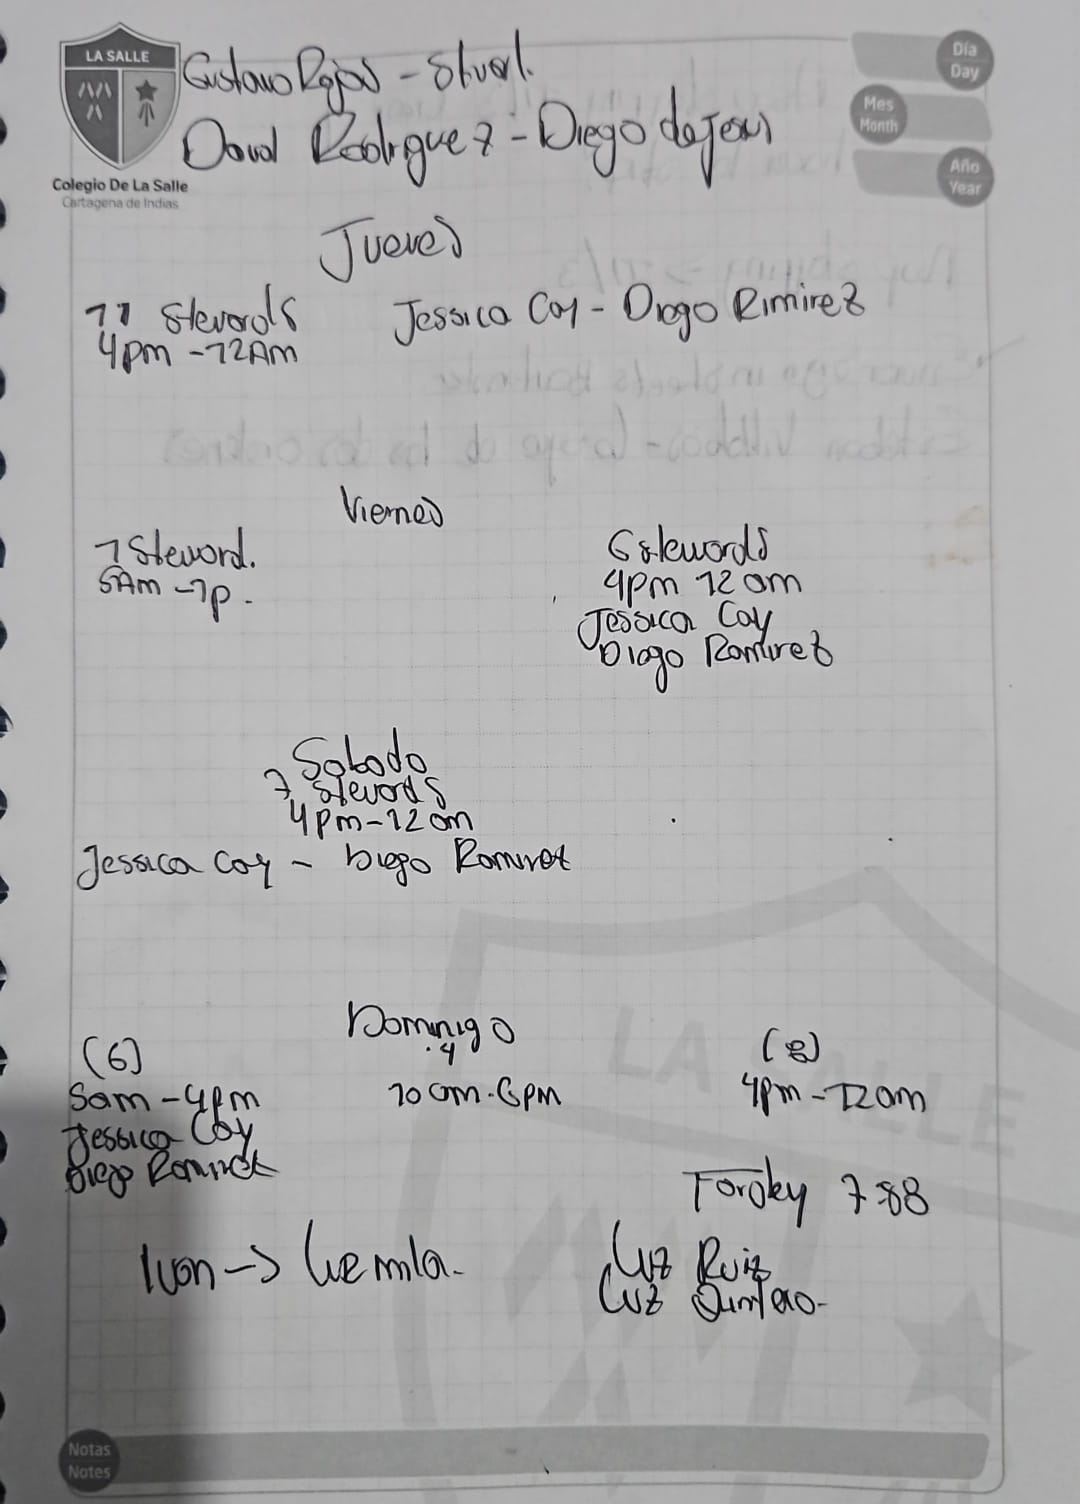 LA SALLE
Colegio De La Salle
Cartagena de Indias
Día
Day
Mes
Month
Año
Year
Gustavo Rojas - Stuart.
David Rodriguez - Diego de Jesus
Jueves
11 Stewards
4pm - 12Am
Jessica Coy - Diego Rimirez
Viernes
1 Steword.
5Am - 1p.
6 stewords
4pm 12 am
Jessica Coy
Diego Ramirez
Sabado
7 stewords
4pm - 12 am
Jessica Coy - Diego Ramirez
Domnigo
(6)
5am - 4pm
Jessica Coy
Diego Ramirez
4
10 am - 6 pm
(8)
4pm - 12 am
7:88
Ivon →
Luz Ruiz
Luz Quintero
LA SALLE
Notas
Notes